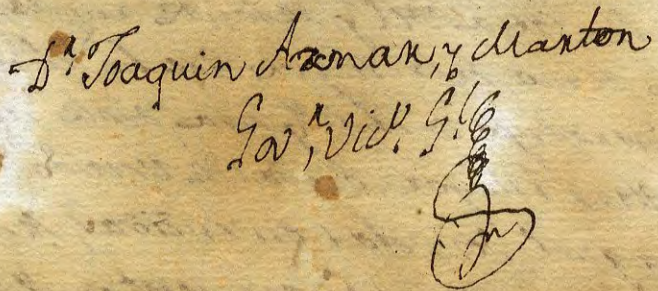 Dr. Joaquin Arnar, y Marton
Govr, Vico. Gl